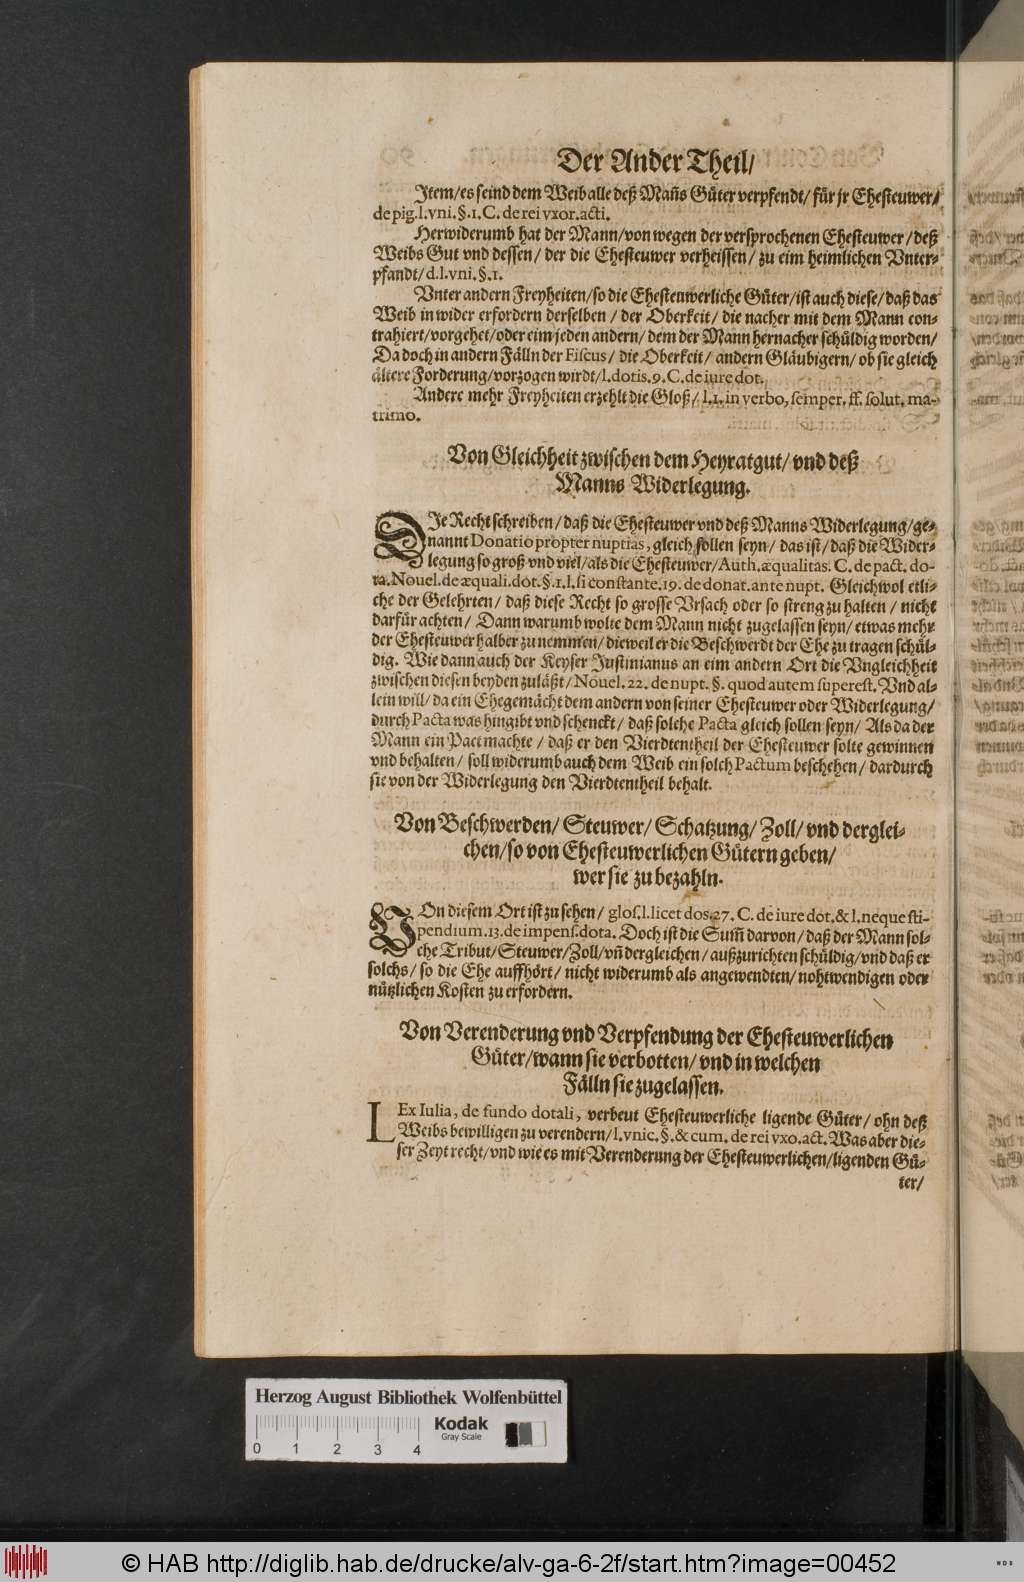 Der Ander Theil/
Item/ es seind dem Weib alle deß Mañs Güter verpfendt/ für jr Ehesteuwer/
de pig. l. vni. §. 1. C. de rei vxor. acti.
Herwiderumb hat der Mann/ von wegen der versprochenen Ehesteuwer/ deß
Weibs Gut vnd dessen/ der die Ehesteuwer verheissen/ zu eim heimlichen Vnter-
pfandt/ d. l. vni. §. 1.
Vnter andern Freyheiten/ so die Ehesteuwerliche Güter/ ist auch diese/ daß das
Weib in wider erfordern derselben/ der Oberkeit/ die nacher mit dem Mann con-
trahiert/ vorgehet/ oder eim jeden andern/ dem der Mann hernacher schüldig worden/
Da doch in andern Fälln der Fiscus/ die Oberkeit/ andern Gläubigern/ ob sie gleich
ältere Forderung/ vorzogen wirdt/ l. dotis. 9. C. de iure dot.
Andere mehr Freyheiten erzehlt die Gloß/ l. 1. in verbo, semper. ff. solut. ma-
trimo.
Von Gleichheit zwischen dem Heyratgut/ vnd deß
Manns Widerlegung.
DIe Recht schreiben/ daß die Ehesteuwer vnd deß Manns Widerlegung/ ge-
nannt Donatio propter nuptias, gleich sollen seyn/ das ist/ daß die Wider-
legung so groß vnd viel/ als die Ehesteuwer/ Auth. æqualitas. C. de pact. do-
ta. Nouel. de æquali. dot. §. 1. l. si constante. 19. de donat. ante nupt. Gleichwol etli-
che der Gelehrten/ daß diese Recht so grosse Vrsach oder so streng zu halten/ nicht
darfür achten/ Dann warumb wolte dem Mann nicht zugelassen seyn/ etwas mehr
der Ehesteuwer halber zu nemmen/ dieweil er die Beschwerdt der Ehe zu tragen schül-
dig. Wie dann auch der Keyser Justinianus an eim andern Ort die Vngleichheit
zwischen diesen beyden zuläßt/ Nouel. 22. de nupt. §. quod autem superest. Vnd al-
lein will/ da ein Ehegemächt dem andern von seiner Ehesteuwer oder Widerlegung/
durch Pacta was hingibt vnd schenckt/ daß solche Pacta gleich sollen seyn/ Als da der
Mann ein Pact machte/ daß er den Vierdtentheil der Ehesteuwer solte gewinnen
vnd behalten/ soll widerumb auch dem Weib ein solch Pactum beschehen/ dardurch
sie von der Widerlegung den Vierdtentheil behalt.
Von Beschwerden/ Steuwer/ Schatzung/ Zoll/ vnd derglei-
chen/ so von Ehesteuwerlichen Gütern geben/
wer sie zu bezahln.
VOn diesem Ort ist zu sehen/ glos. l. licet dos. 27. C. de iure dot. & l. neque sti-
pendium. 13. de impens. dota. Doch ist die Sum̃ darvon/ daß der Mann sol-
che Tribut/ Steuwer/ Zoll/ vñ dergleichen/ außzurichten schüldig/ vnd daß er
solchs/ so die Ehe auffhört/ nicht widerumb als angewendten/ nohtwendigen oder
nützlichen Kosten zu erfordern.
Von Verenderung vnd Verpfendung der Ehesteuwerlichen
Güter/ wann sie verbotten/ vnd in welchen
Fälln sie zugelassen.
LEx Iulia, de fundo dotali, verbeut Ehesteuwerliche ligende Güter/ ohn deß
Weibs bewilligen zu verendern/ l. vnic. §. & cum. de rei vxo. act. Was aber die-
ser Zeyt recht/ vnd wie es mit Verenderung der Ehesteuwerlichen/ ligenden Gü-
ter/
Herzog August Bibliothek Wolfenbüttel
Kodak
Gray Scale
0 1 2 3 4
© HAB http://diglib.hab.de/drucke/alv-ga-6-2f/start.htm?image=00452